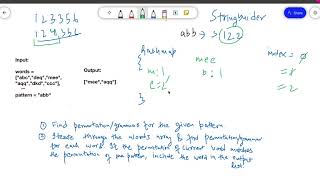 123356
124356
Stringbuilder
abb → 122
Hashmap
{
mee
m:1
b:1
e:2
}
index = 0
= 1
= 2
Input:
words =
["abc","deq","mee",
"aqq","dkd","ccc"],
pattern = "abb"
Output:
["mee","aqq"]
① Find permutation/grammar for the given pattern
② Iterate through the words array & find permutation/grammar
for each word. If the permutation of current word matches
the permutation of the pattern, include the word in the output
list.